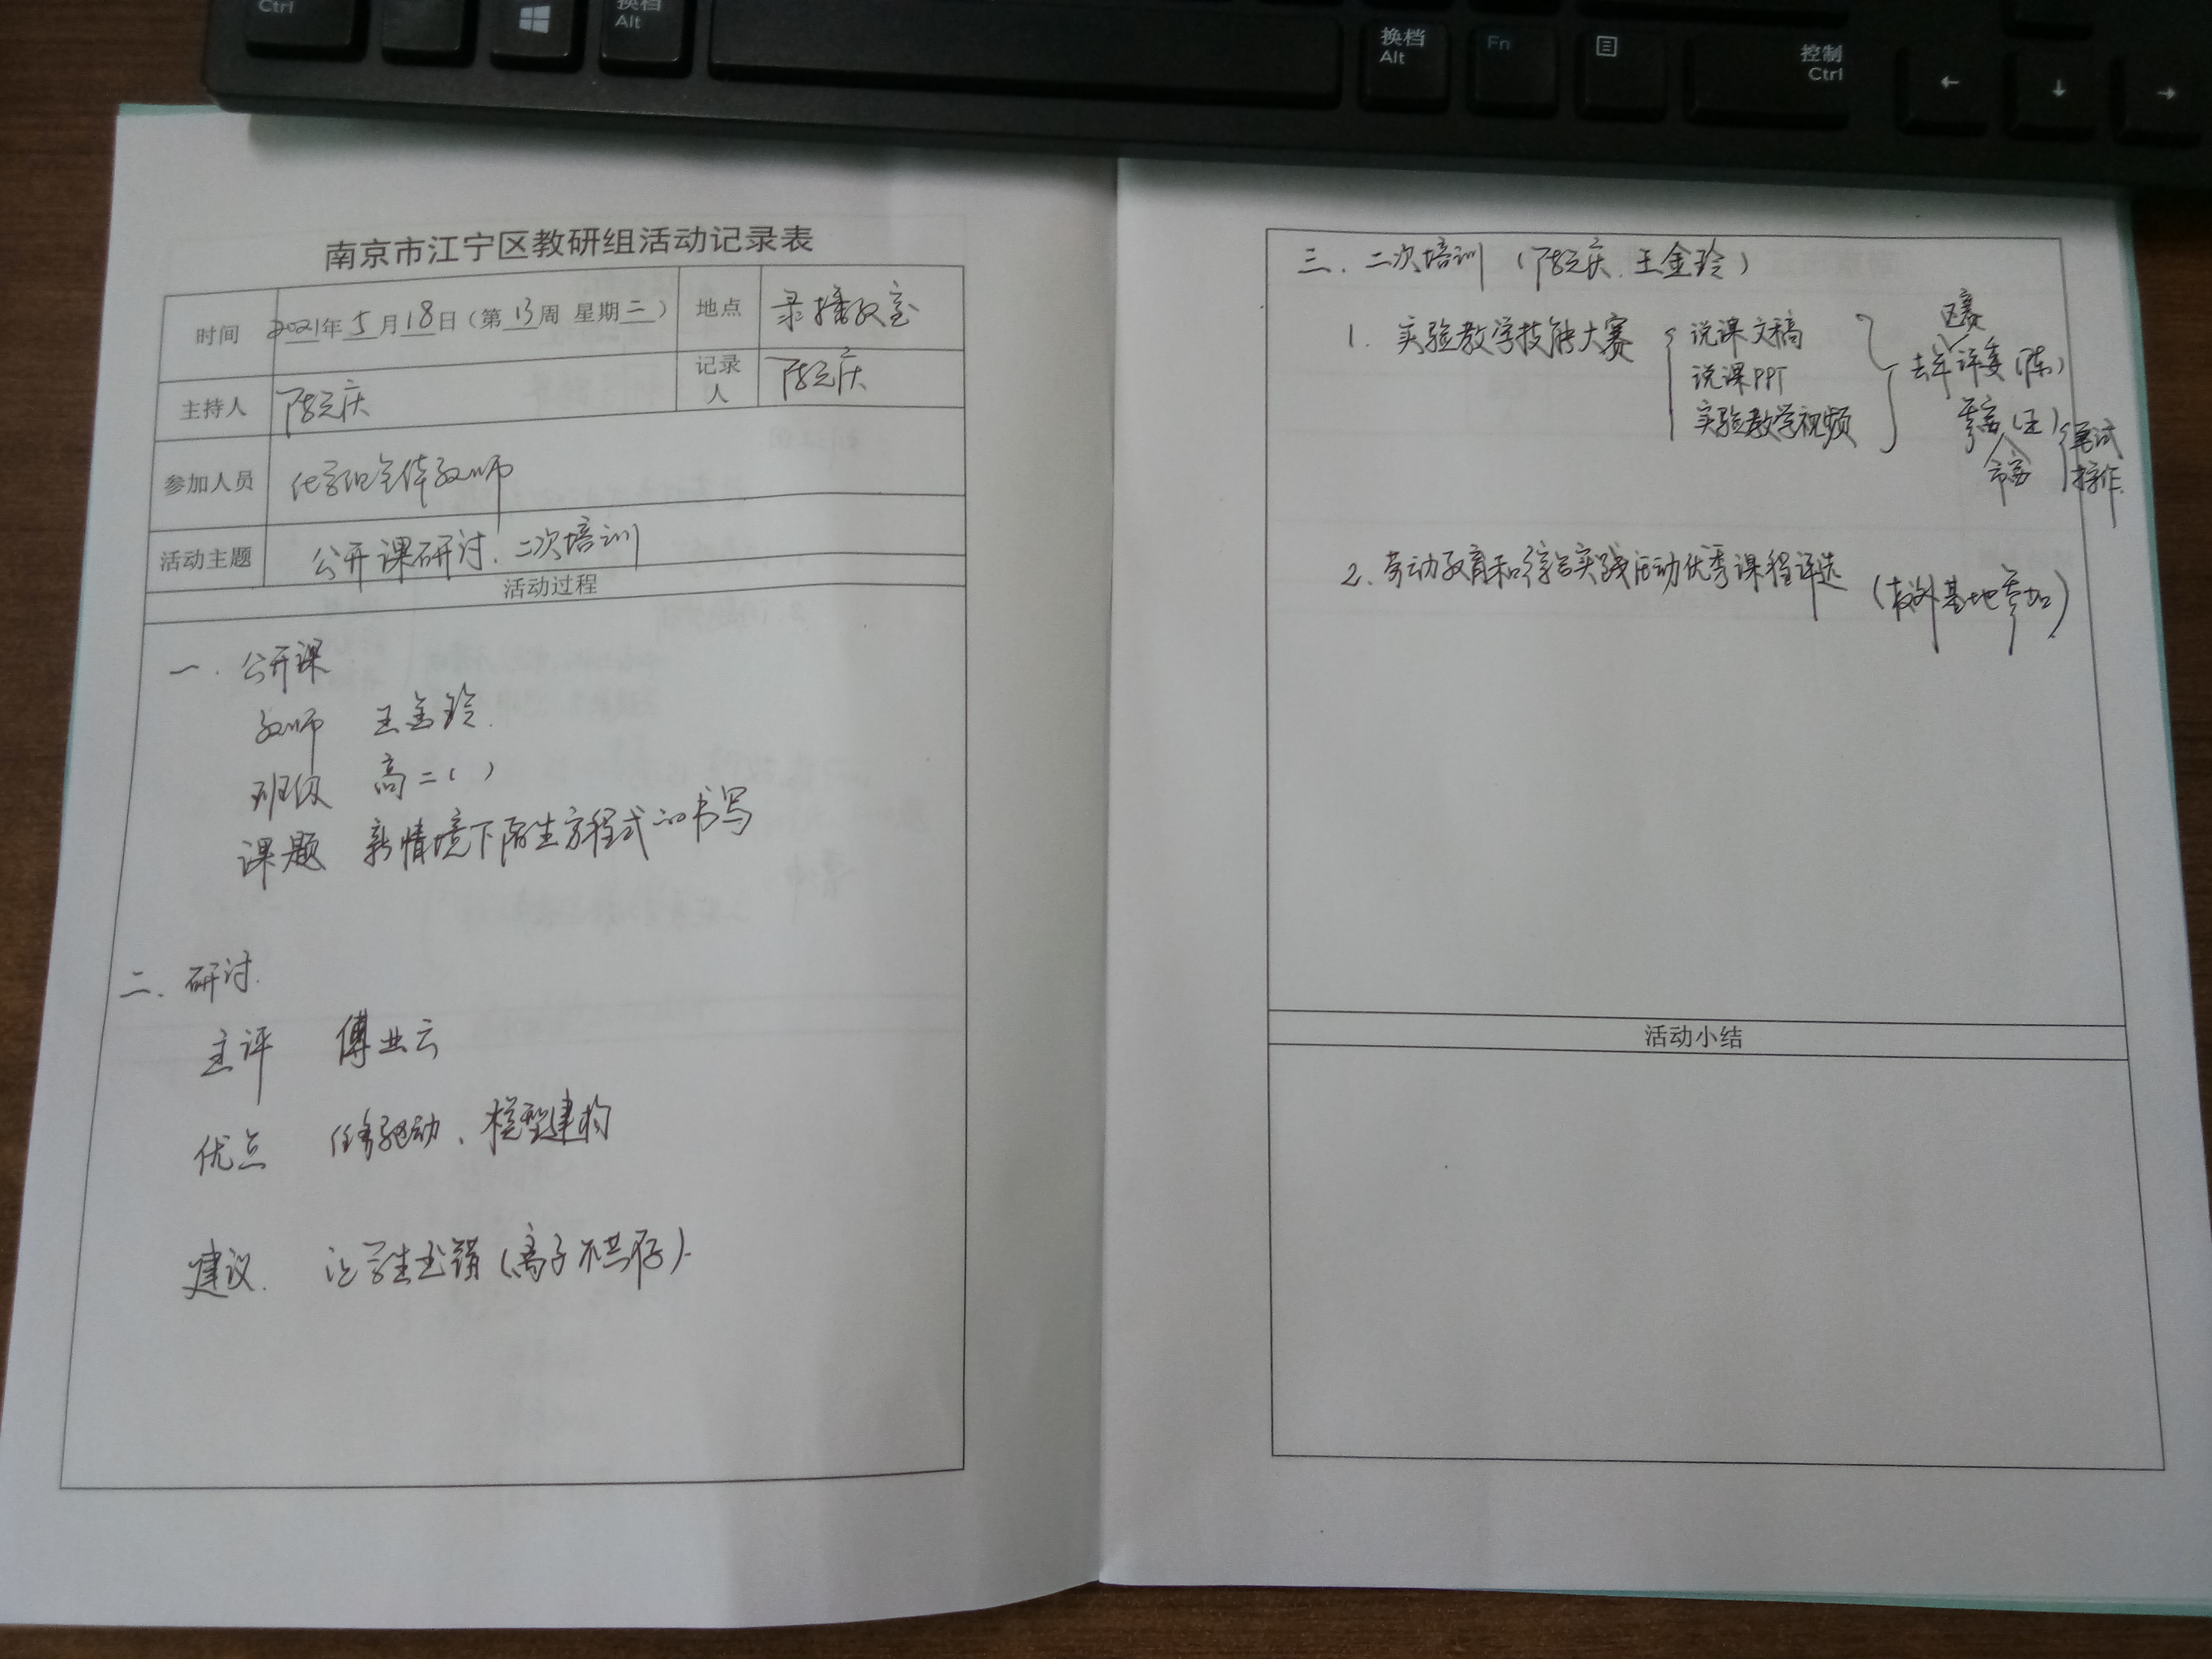 Ctrl
换档
Alt
换档
Alt
Fn
控制
Ctrl
←
↓
→
南京市江宁区教研组活动记录表
时间 2021年5月18日（第13周 星期二） 地点 录播教室
主持人 陈元庆 记录人 陈元庆
参加人员 化学组全体教师
活动主题 公开课研讨、二次培训
活动过程
一. 公开课
教师 王金玲.
班级 高二（ ）
课题 新情境下陌生方程式的书写
二、研讨.
主评 傅业云
优点 任务驱动、模型建构
建议. 让学生出错（离子不共存）.
三、二次培训（陈元庆、王金玲）
1. 实验教学技能大赛
说课文稿
说课PPT
实验教学视频
区赛
去年评委（陈）
参赛（王）
市赛
笔试
操作.
2、劳动教育和综合实践活动优秀课程评选
（校外基地参加）
活动小结